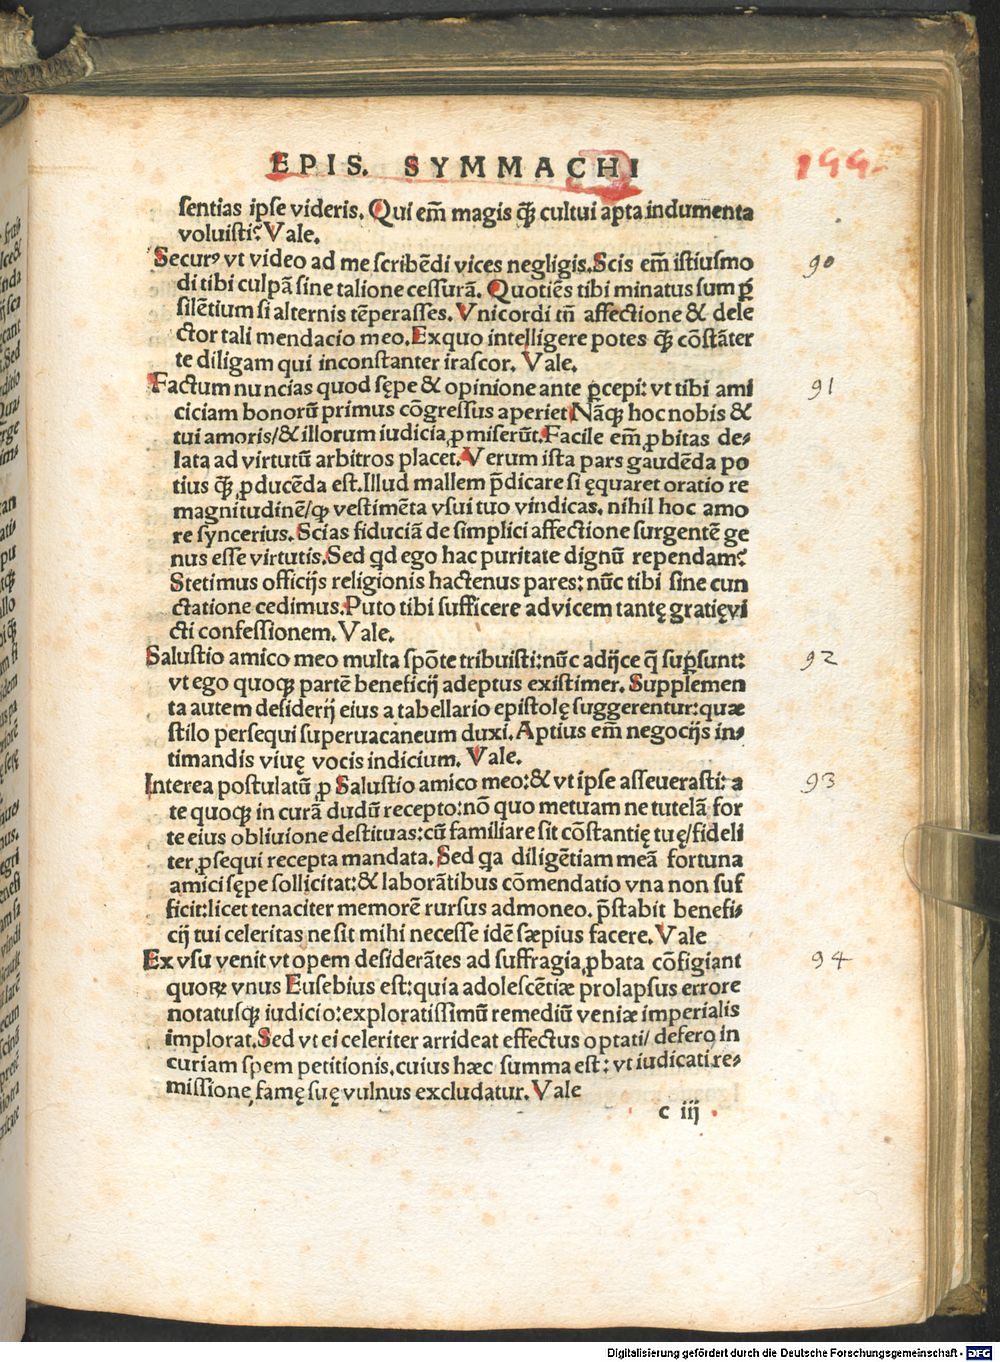 EPIS. SYMMACHI
199.
sentias ipse videris. Qui em̃ magis q̃ꝫ cultui apta indumenta
voluisti? Vale.
Securꝰ vt video ad me scribēdi vices negligis. Scis em̃ istiusmo
90
di tibi culpā sine talione cessurā. Quotiēs tibi minatus sum ꝑ
silētium si alternis tēperasses. Vnicordi tñ affectione & dele
ctor tali mendacio meo. Exquo intelligere potes q̃ꝫ cōstāter
te diligam qui inconstanter irascor. Vale.
Factum nuncias quod sępe & opinione ante p̄cepi: vt tibi ami
91
ciciam bonorū primus cōgressus aperiet Nāqꝫ hoc nobis &
tui amoris/& illorum iudicia ꝓmiserūt. Facile em̃ ꝓbitas de⸗
lata ad virtutū arbitros placet. Verum ista pars gaudēda po
tius q̃ꝫ ꝓducēda est. Illud mallem p̄dicare si ęquaret oratio re
magnitudinē/ꝙ vestimēta vsui tuo vindicas. nihil hoc amo
re syncerius. Scias fiduciā de simplici affectione surgentē ge
nus esse virtutis. Sed qd ego hac puritate dignū rependam?
Stetimus officijs religionis hactenus pares: nūc tibi sine cun
ctatione cedimus. Puto tibi sufficere ad vicem tantę gratię vi
cti confessionem. Vale.
Salustio amico meo multa spōte tribuisti: nūc adijce q̄ suꝑsunt:
92
vt ego quoqꝫ partē beneficij adeptus existimer. Supplemen
ta autem desiderij eius a tabellario epistolę suggerentur: quæ
stilo persequi superuacaneum duxi. Aptius em̃ negocijs in⸗
timandis viuę vocis indicium. Vale.
Interea postulatū ꝓ Salustio amico meo: & vt ipse asseuerasti: a
93
te quoqꝫ in curā dudū recepto: nō quo metuam ne tutelā for
te eius obliuione destituas: cū familiare sit cōstantię tuę/fideli
ter ꝓsequi recepta mandata. Sed qa diligētiam meā fortuna
amici sępe sollicitat: & laborātibus cōmendatio vna non suf
ficit: licet tenaciter memorē rursus admoneo. p̄stabit benefi⸗
cij tui celeritas ne sit mihi necesse idē sæpius facere. Vale
Ex vsu venit vt opem desiderātes ad suffragia ꝓbata cōfigiant
94
quoꝝ vnus Eusebius est: quia adolescētiæ prolapsus errore
notatusqꝫ iudicio: exploratissimū remediū veniæ imperialis
implorat. Sed vt ei celeriter arrideat effectus optati/ defero in
curiam spem petitionis, cuius hæc summa est: vt iudicati re⸗
missione famę suę vulnus excludatur. Vale
c iij
Digitalisierung gefördert durch die Deutsche Forschungsgemeinschaft - DFG